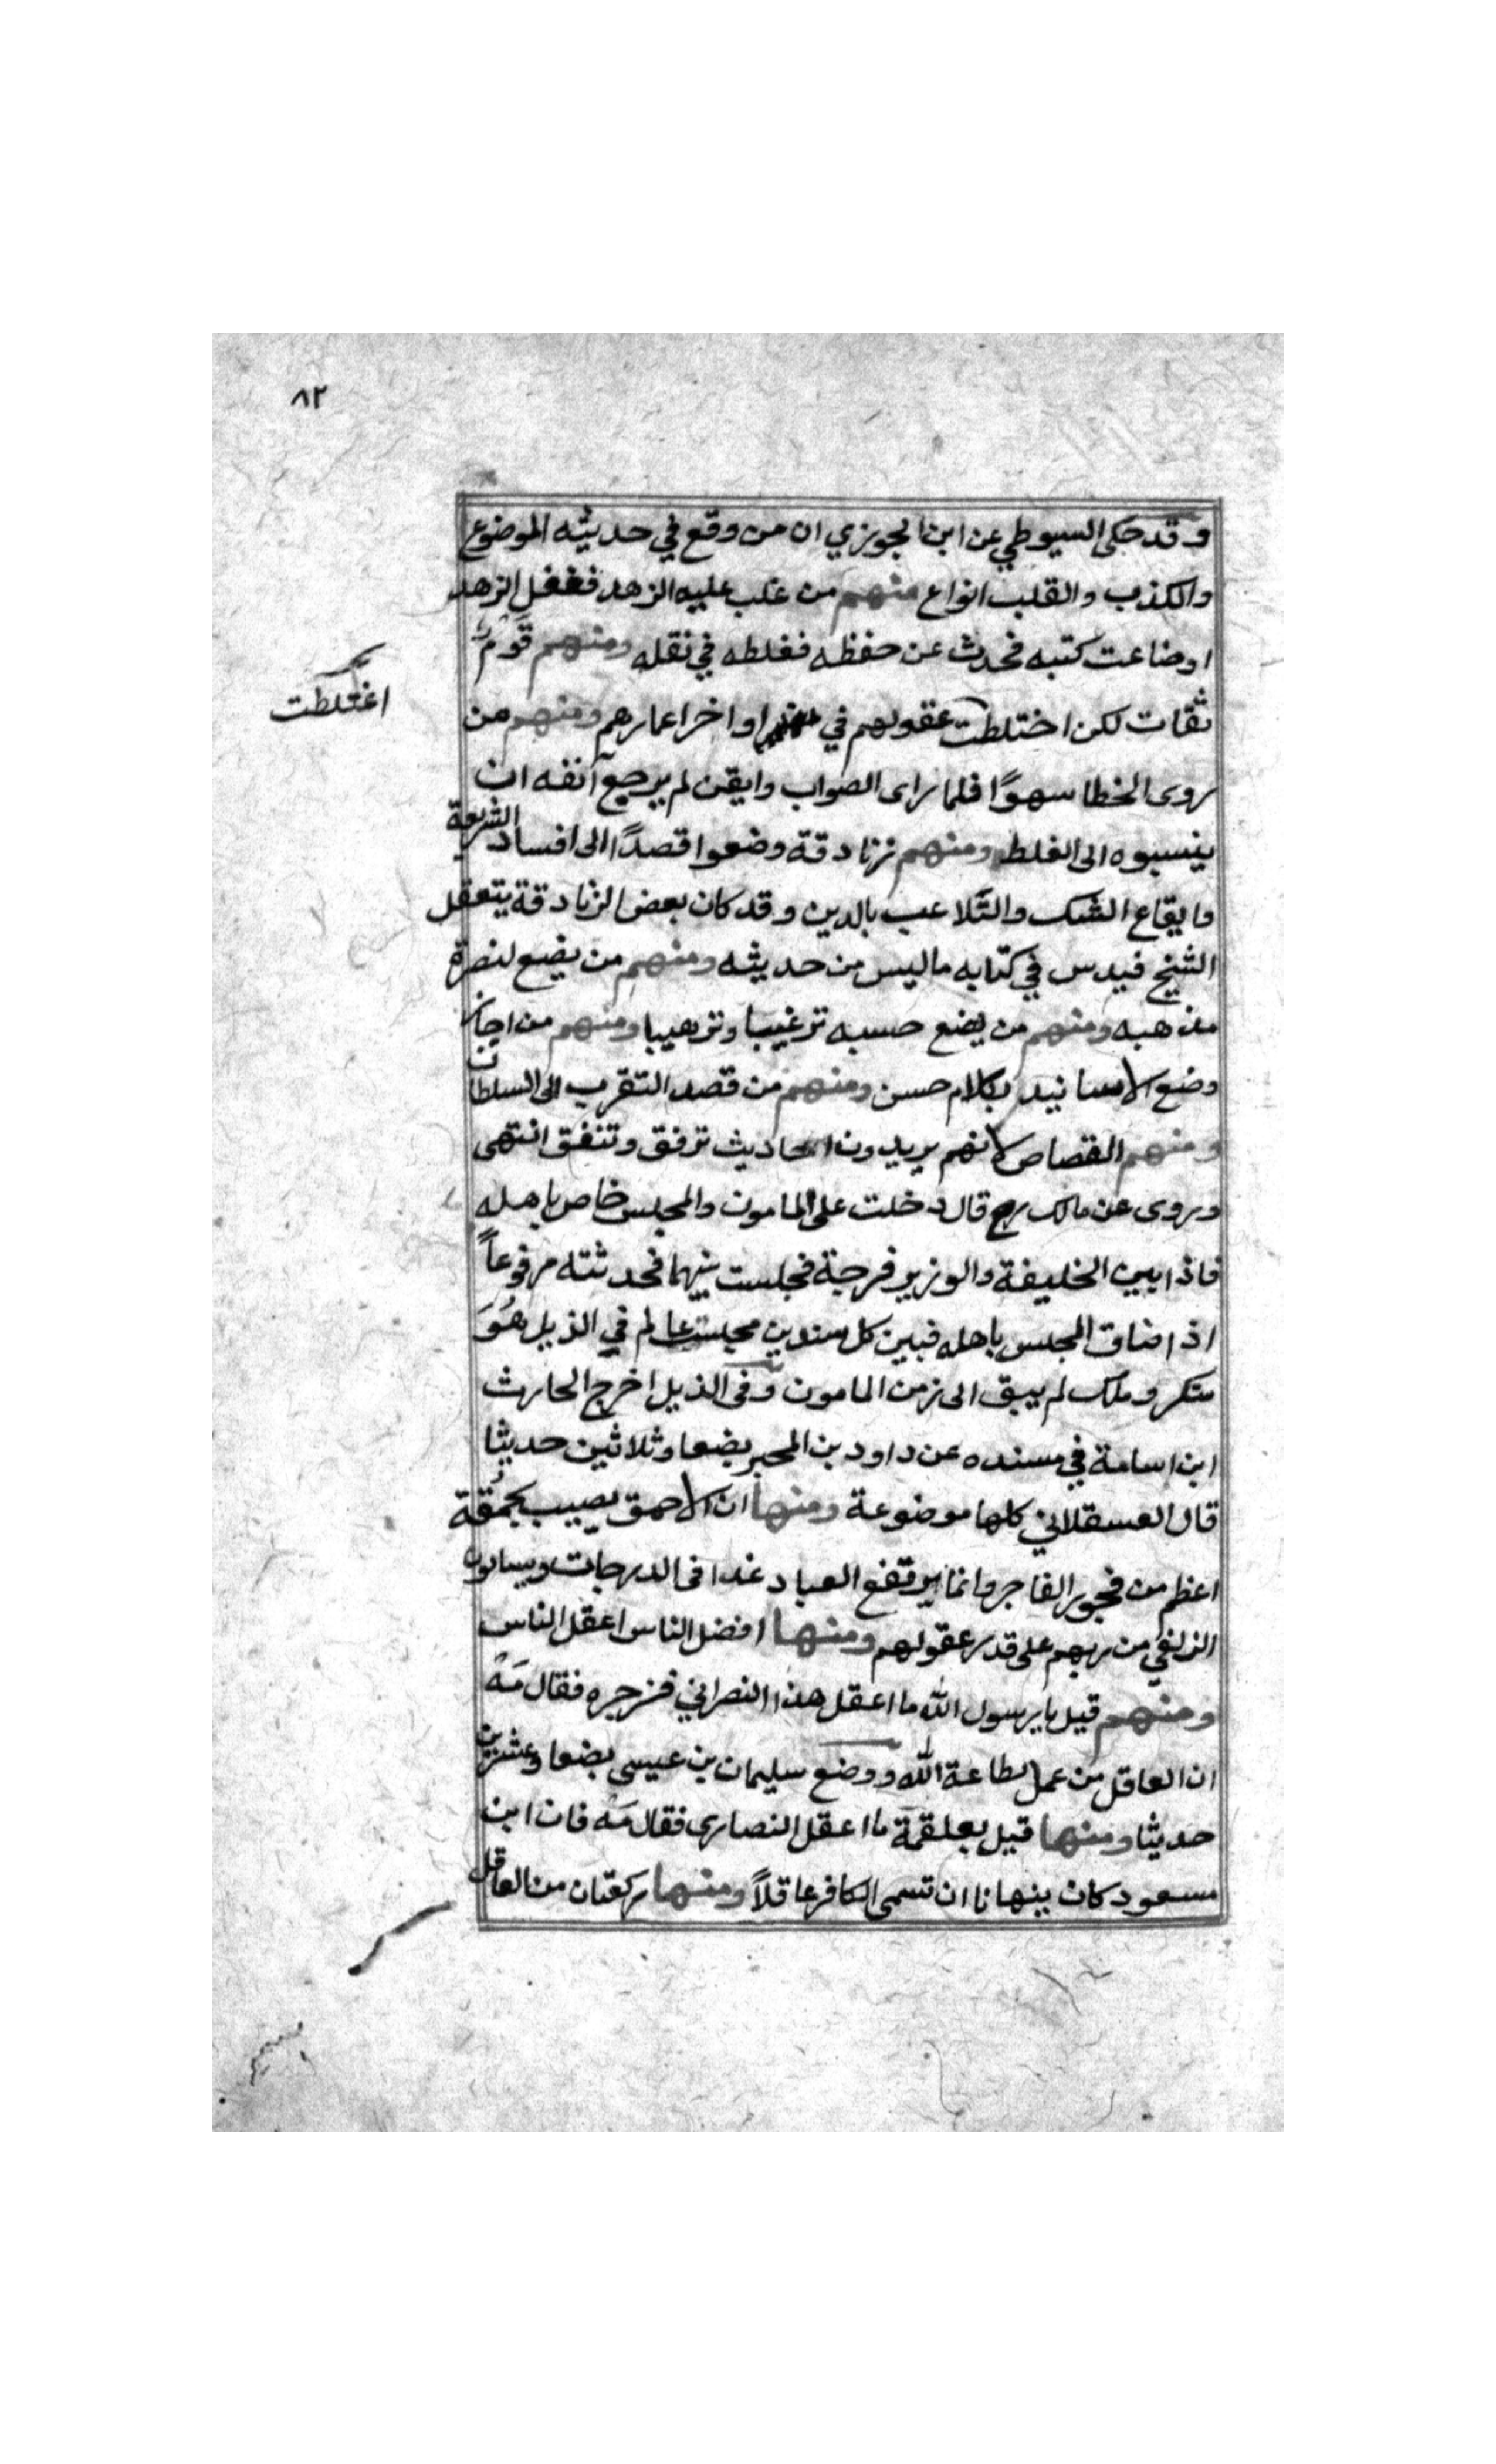 ٨٢
وقد حكى السيوطي عن ابن الجوزي ان من وقع في حديثه الموضوع
والكذب والقلب انواع منهم من غلب عليه الزهد فغفل الزهد
اوضاعت كتبه فحدث عن حفظه فغلطه في نقله ومنهم قوم
ثقات لكن اختلطت عقولهم في اواخر اعمارهم ومنهم من
اغتلطت
روى الخطا سهوًا فلما راى الصواب وايقن لم يرجع آنفه ان
ينسبوه الى الغلط ومنهم زنادقة وضعوا قصدًا الى افساد الشريعة
وايقاع الشك والتلاعب بالدين وقد كان بعض الزنادقة يتعقل
الشيخ فيدس في كتابه ما ليس من حديثه ومنهم من يضع لنصرة
مذهبه ومنهم من يضع حسبه ترغيبا وترهيبا ومنهم من اجاز
وضع الاسانيد بكلام حسن ومنهم من قصد التقرب الى السلطان
ومنهم القصاص لانهم يريدون احاديث ترفق وتنفق انتهى
وروى عن مالك رح قال دخلت على المامون والمجلس خاص باهله
فاذا بين الخليفة والوزير فرجة فجلست بينهما فحدثته مرفوعاً
اذا ضاق المجلس باهله فبين كل سندين مجلس عالم في الذيل هُوَ
منكر وملك لم يبق الى زمن المامون وفى الذيل اخرج الحارث
ابن اسامة في مسنده عن داود بن المحبر بضعا وثلاثين حديثا
قال العسقلاني كلها موضوعة ومنها ان الاحمق يصيب بحمُقة
اعظم من فجور الفاجر وانما يرتفع العباد غدا فى الدرجات ويسالون
الزلفي من ربهم على قدر عقولهم ومنها افضل الناس اعقل الناس
ومنهم قيل يا رسول الله ما اعقل هذا النصراني فزجره فقال مَهْ
ان العاقل من عمل بطاعة الله ووضع سليمان بن عيسى بضعا وعشرين
حديثا ومنها قيل بعلقمة ما اعقل النصارى فقال مَه فان ابن
مسعود كان ينهانا ان تسمى الكافر عاقلاً ومنها ركعتان من العاقل